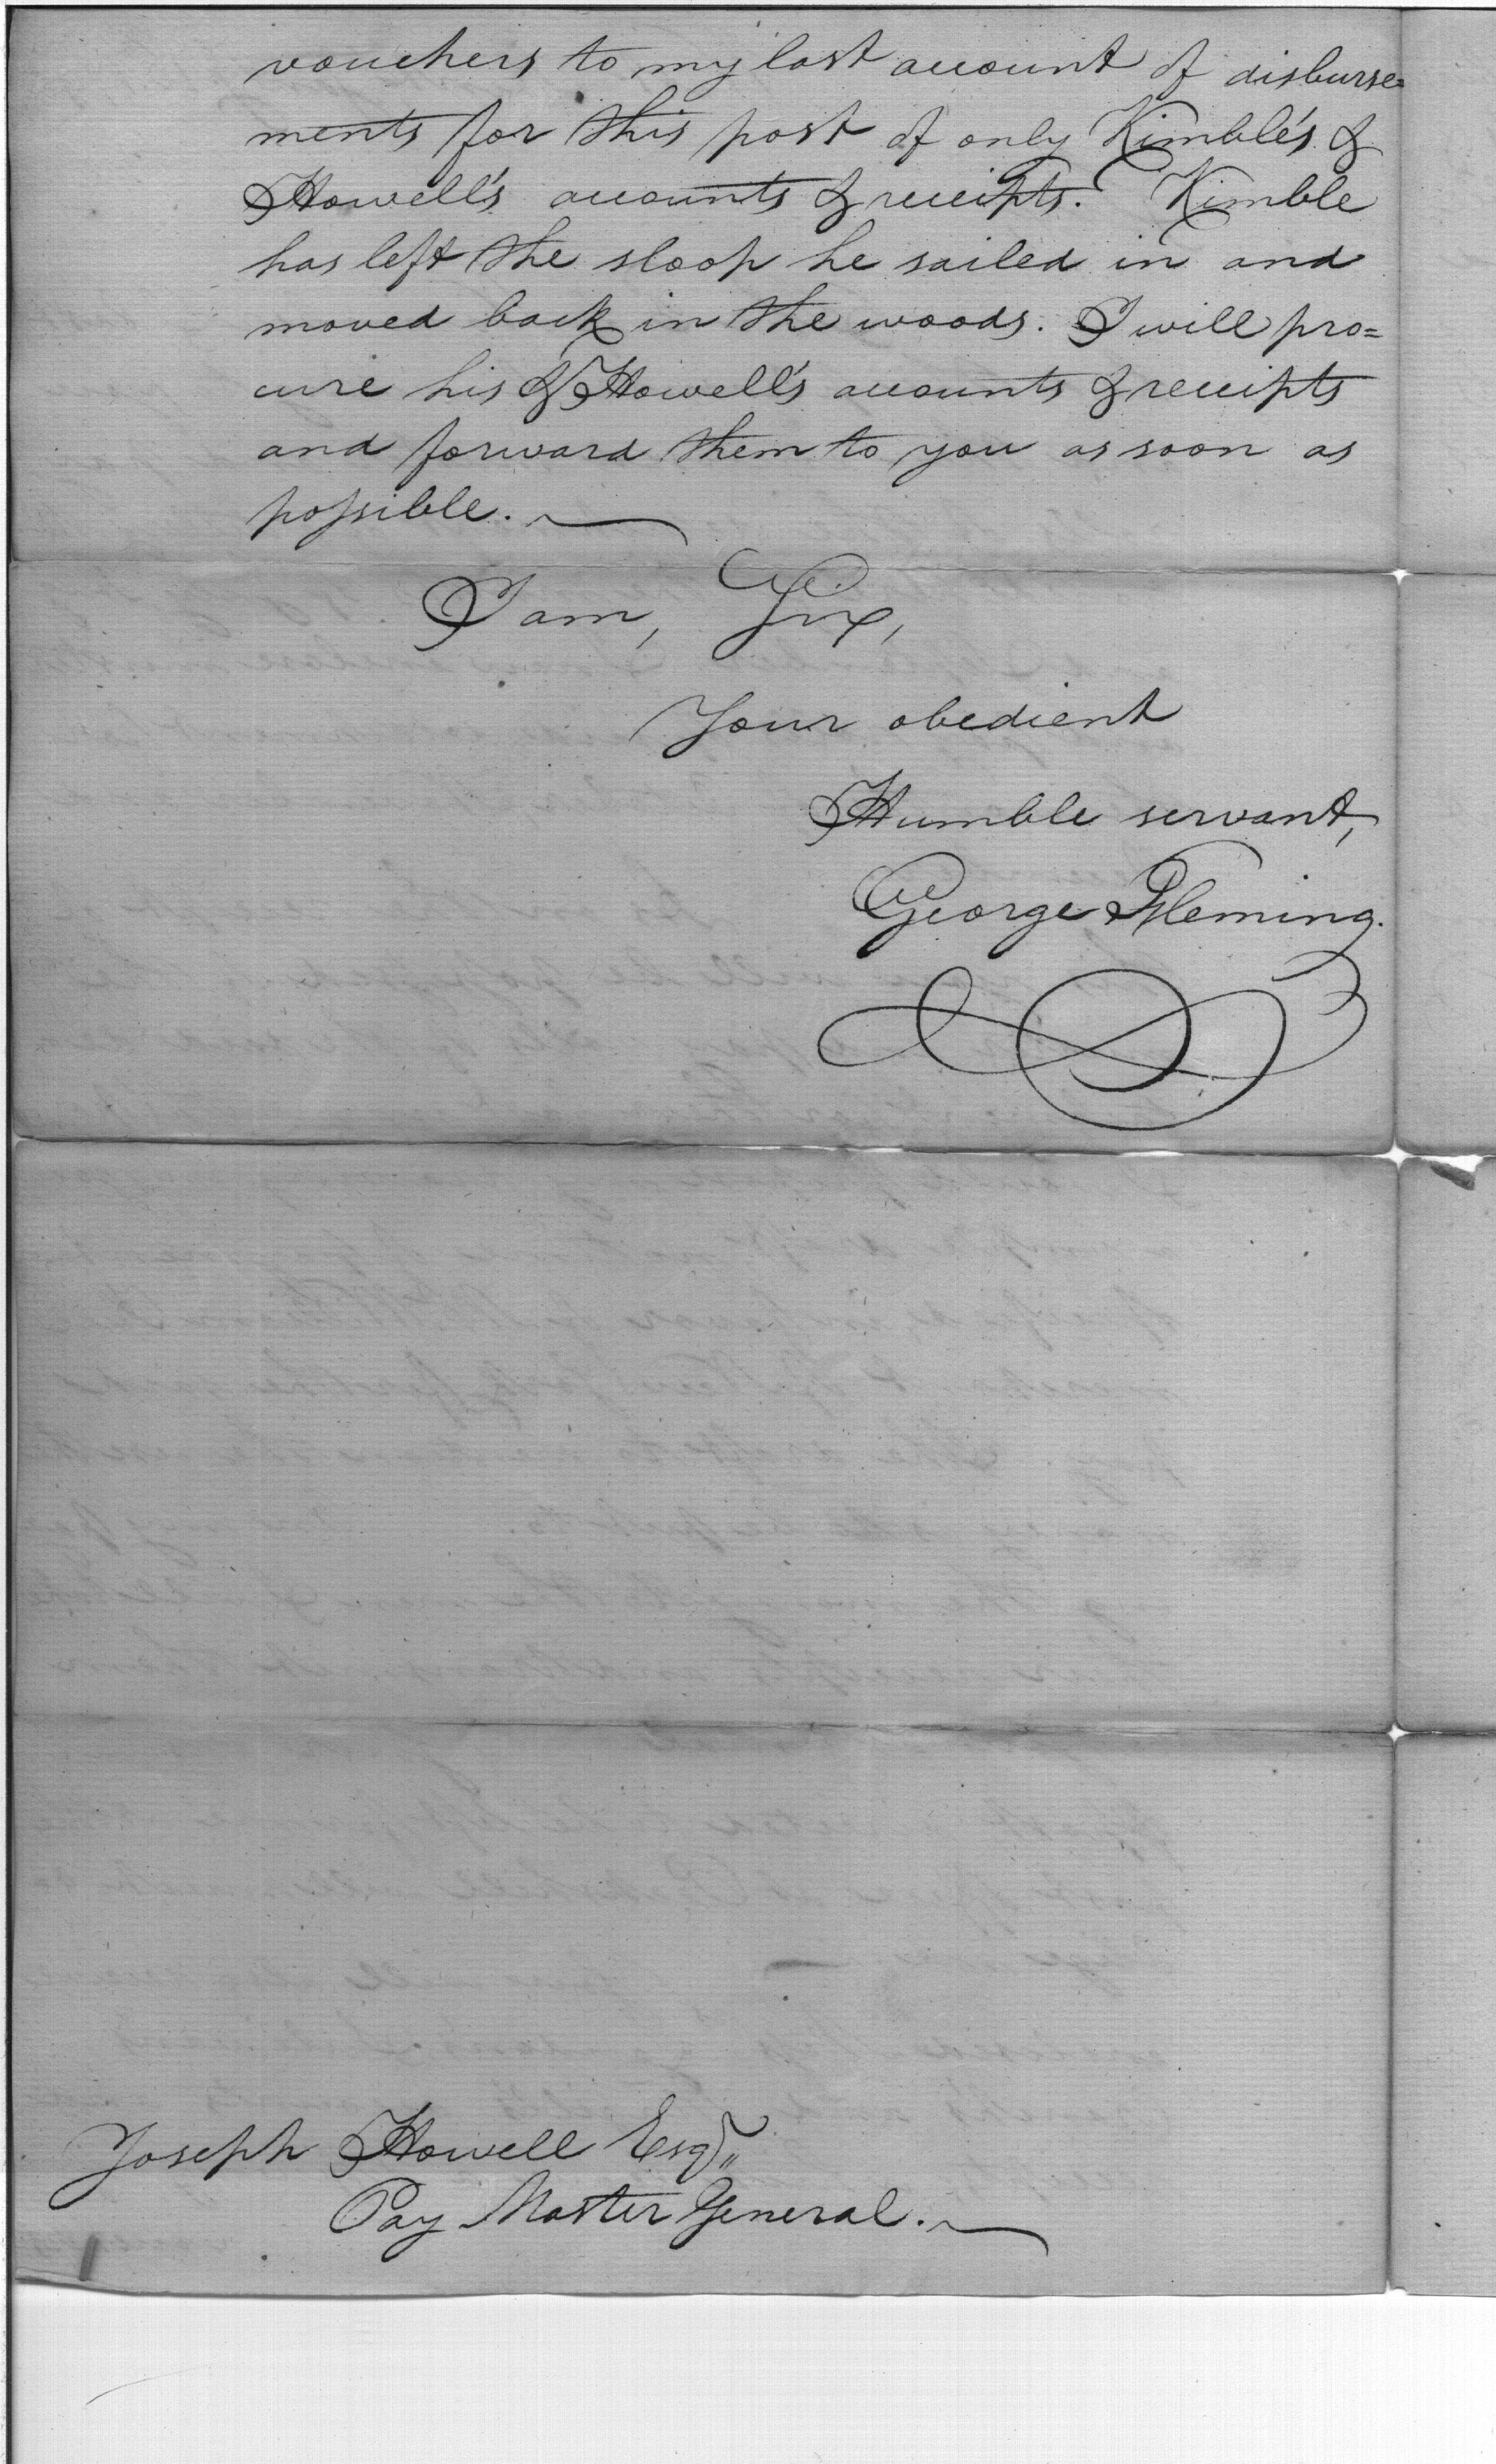 vouchers to my last account of disburse=
ments for this post of only Kimble's &
Howell's accounts & receipts. Kimble
has left the sloop he sailed in and
moved back in the woods. I will pro=
cure his & Howell's accounts & receipts
and forward them to you as soon as
possible.
I am, Sir,
Your obedient
Humble servant,
George Fleming.
Joseph Howell Esqr,,
Pay Master General.